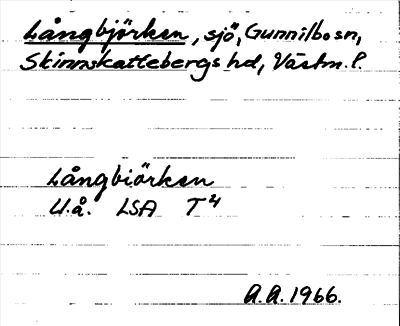 Långbjörken, sjö, Gunnilbo sn,
Skinnskattebergs hd, Västm. l.
Långbiörken
U.å. LSA T4
A.A. 1966.